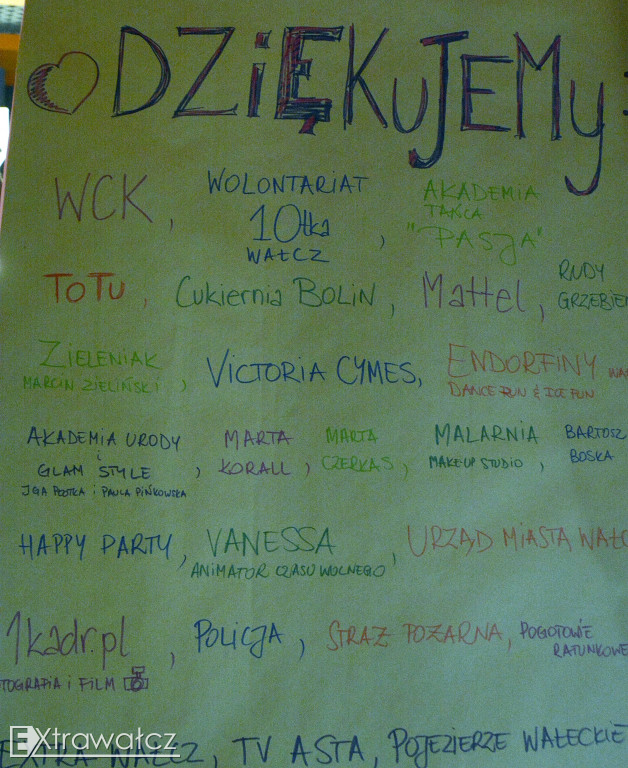 DZIĘKUJEMY
WCK, WOLONTARIAT 10tka WAŁCZ, AKADEMIA TAŃCA "PASJA"
TOTU, Cukiernia BOLIN, Mattel, RUDY GRZEBIEŃ
ZIELENIAK MARCIN ZIELIŃSKI, VICTORIA CYMES, ENDORFINY DANCE RUN & ICE RUN
AKADEMIA URODY i GLAM STYLE i PAULA PIŃKOWSKA, MARTA KORALL, MARTA CZERKAS, MALARNIA MAKE-UP STUDIO, BARTOSZ BOSKA
HAPPY PARTY, VANESSA ANIMATOR CZASU WOLNEGO, URZĄD MIASTA WAŁC
1kadr.pl TOGRAFIA i FILM, POLICJA, STRAŻ POŻARNA, POGOTOWIE RATUNKOWE
EXTRA WAŁCZ, TV ASTA, POJEZIERZE WAŁECKIE
EXtrawałcz